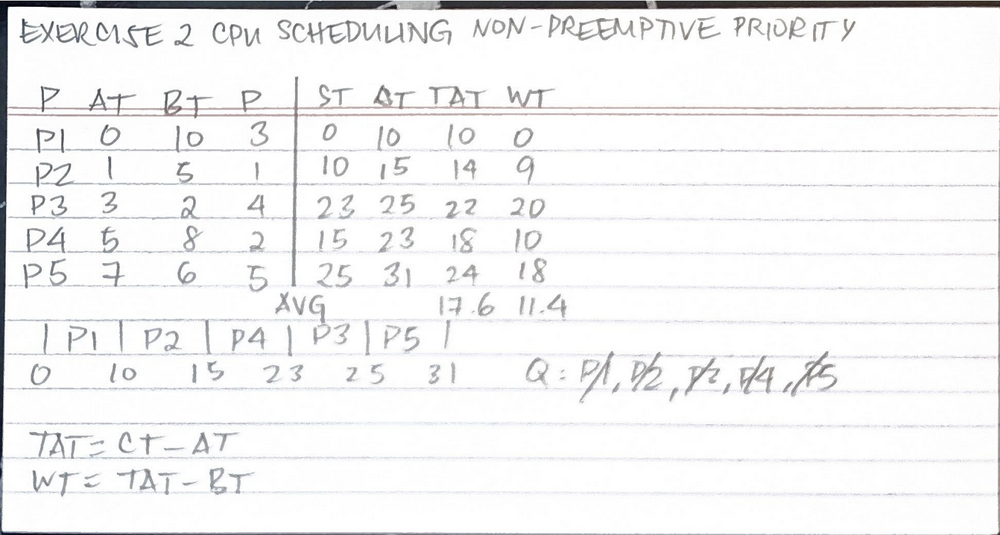 EXERCISE 2 CPU SCHEDULING NON-PREEMPTIVE PRIORITY
P AT BT P | ST CT TAT WT
P1 0 10 3 | 0 10 10 0
P2 1 5 1 | 10 15 14 9
P3 3 2 4 | 23 25 22 20
P4 5 8 2 | 15 23 18 10
P5 7 6 5 | 25 31 24 18
AVG 17.6 11.4
| P1 | P2 | P4 | P3 | P5 |
0 10 15 23 25 31 Q: P1, P2, P3, P4, P5
TAT = CT - AT
WT = TAT - BT